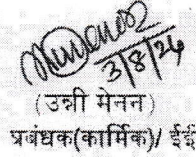 3/8/24
(उन्नी मेनन)
प्रबंधक(कार्मिक)/ ईई